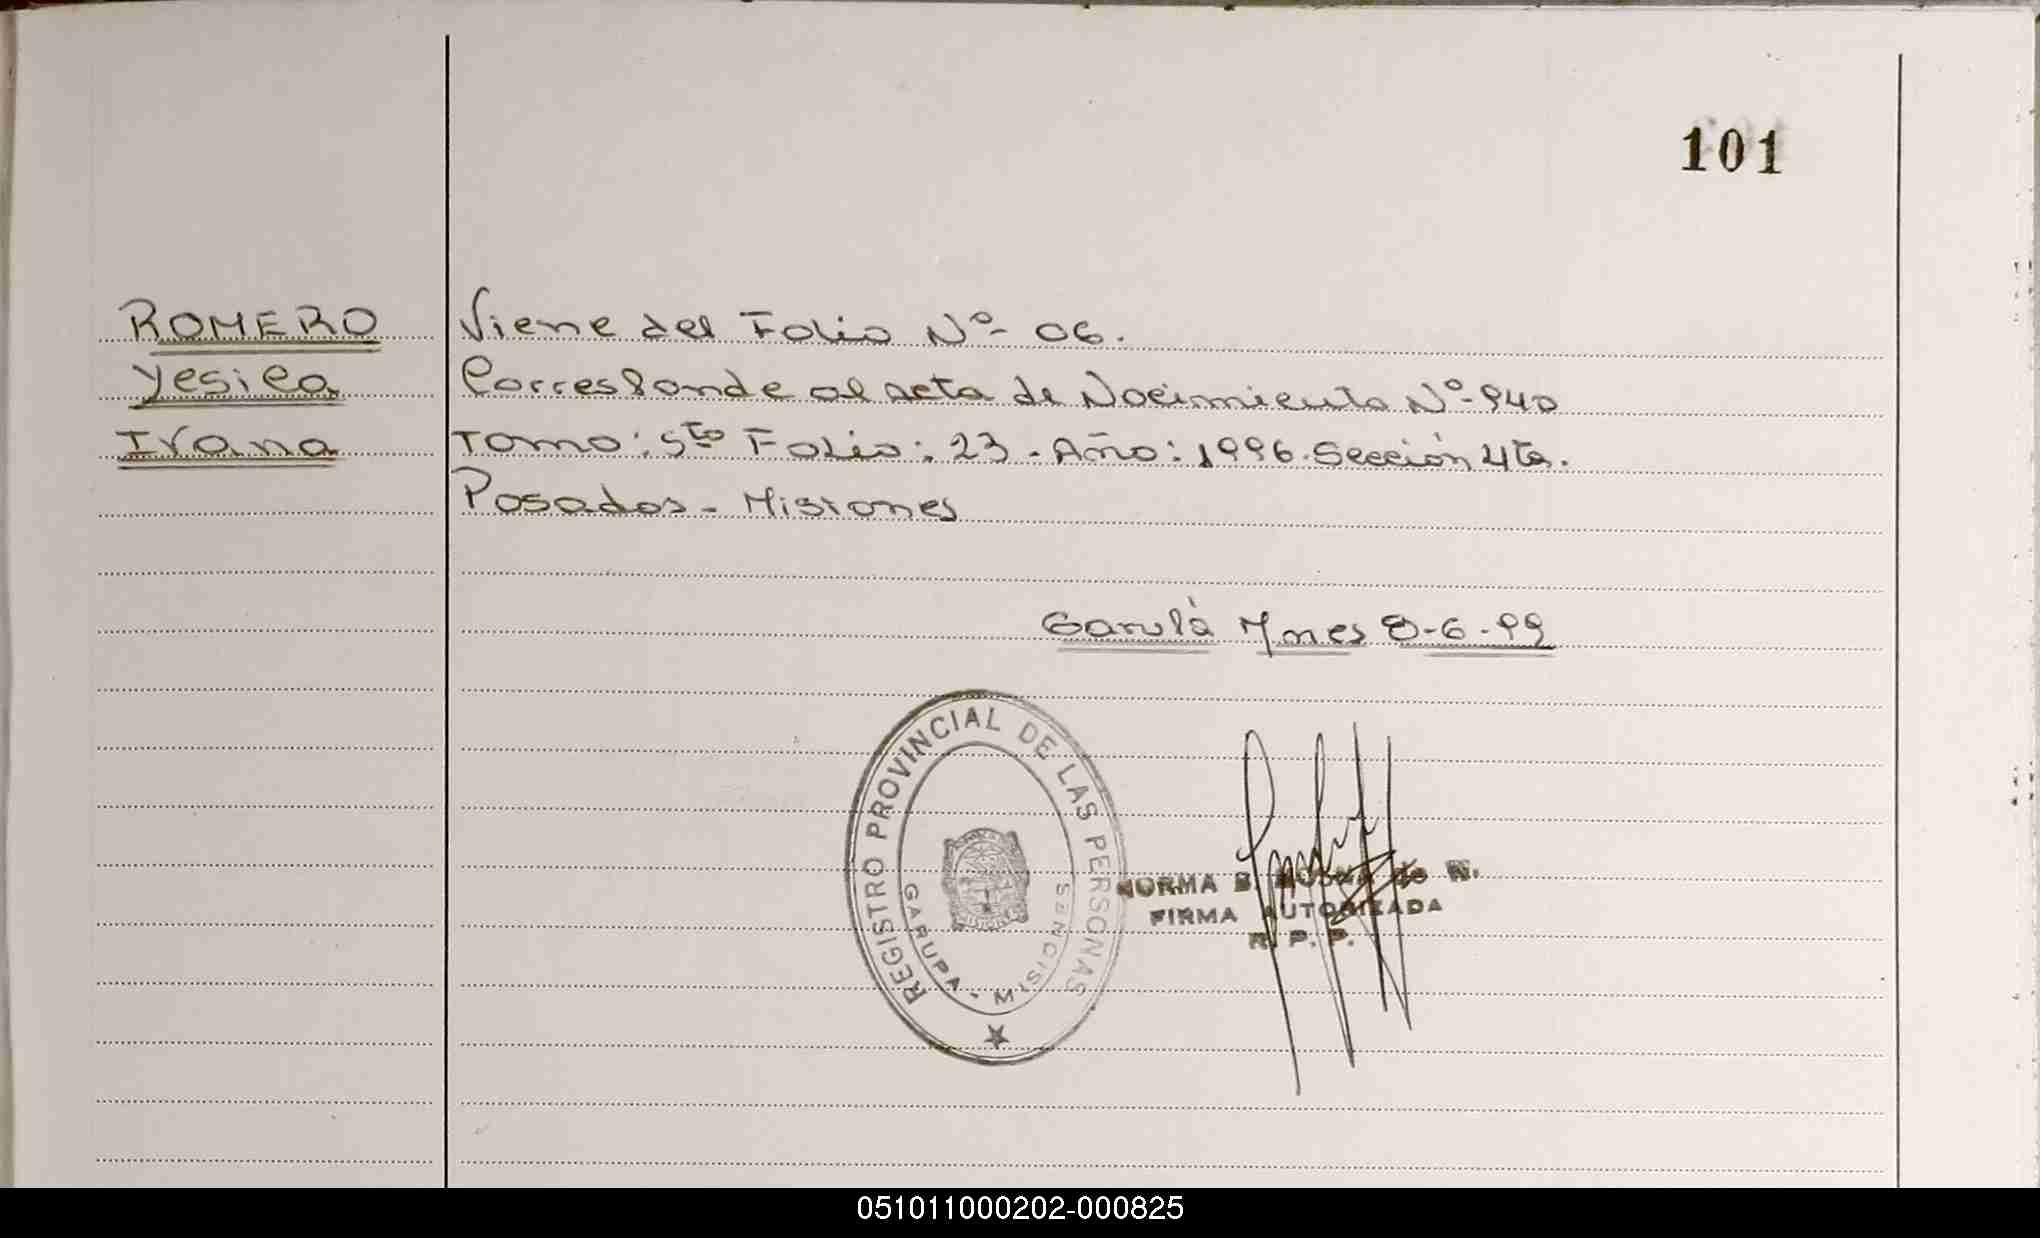 101
ROMERO
Yesica
Ivana
Viene del Folio Nº- 06.
Corresponde al acta de Nacimiento Nº-940
Tomo: 5to Folio: 23 - Año: 1996. Sección 4ta.
Posadas - Misiones
Garupá Mnes 8-6-99
REGISTRO PROVINCIAL DE LAS PERSONAS
GARUPA - MISIONES
NORMA B. de N.
FIRMA AUTORIZADA
R. P. P.
051011000202-000825